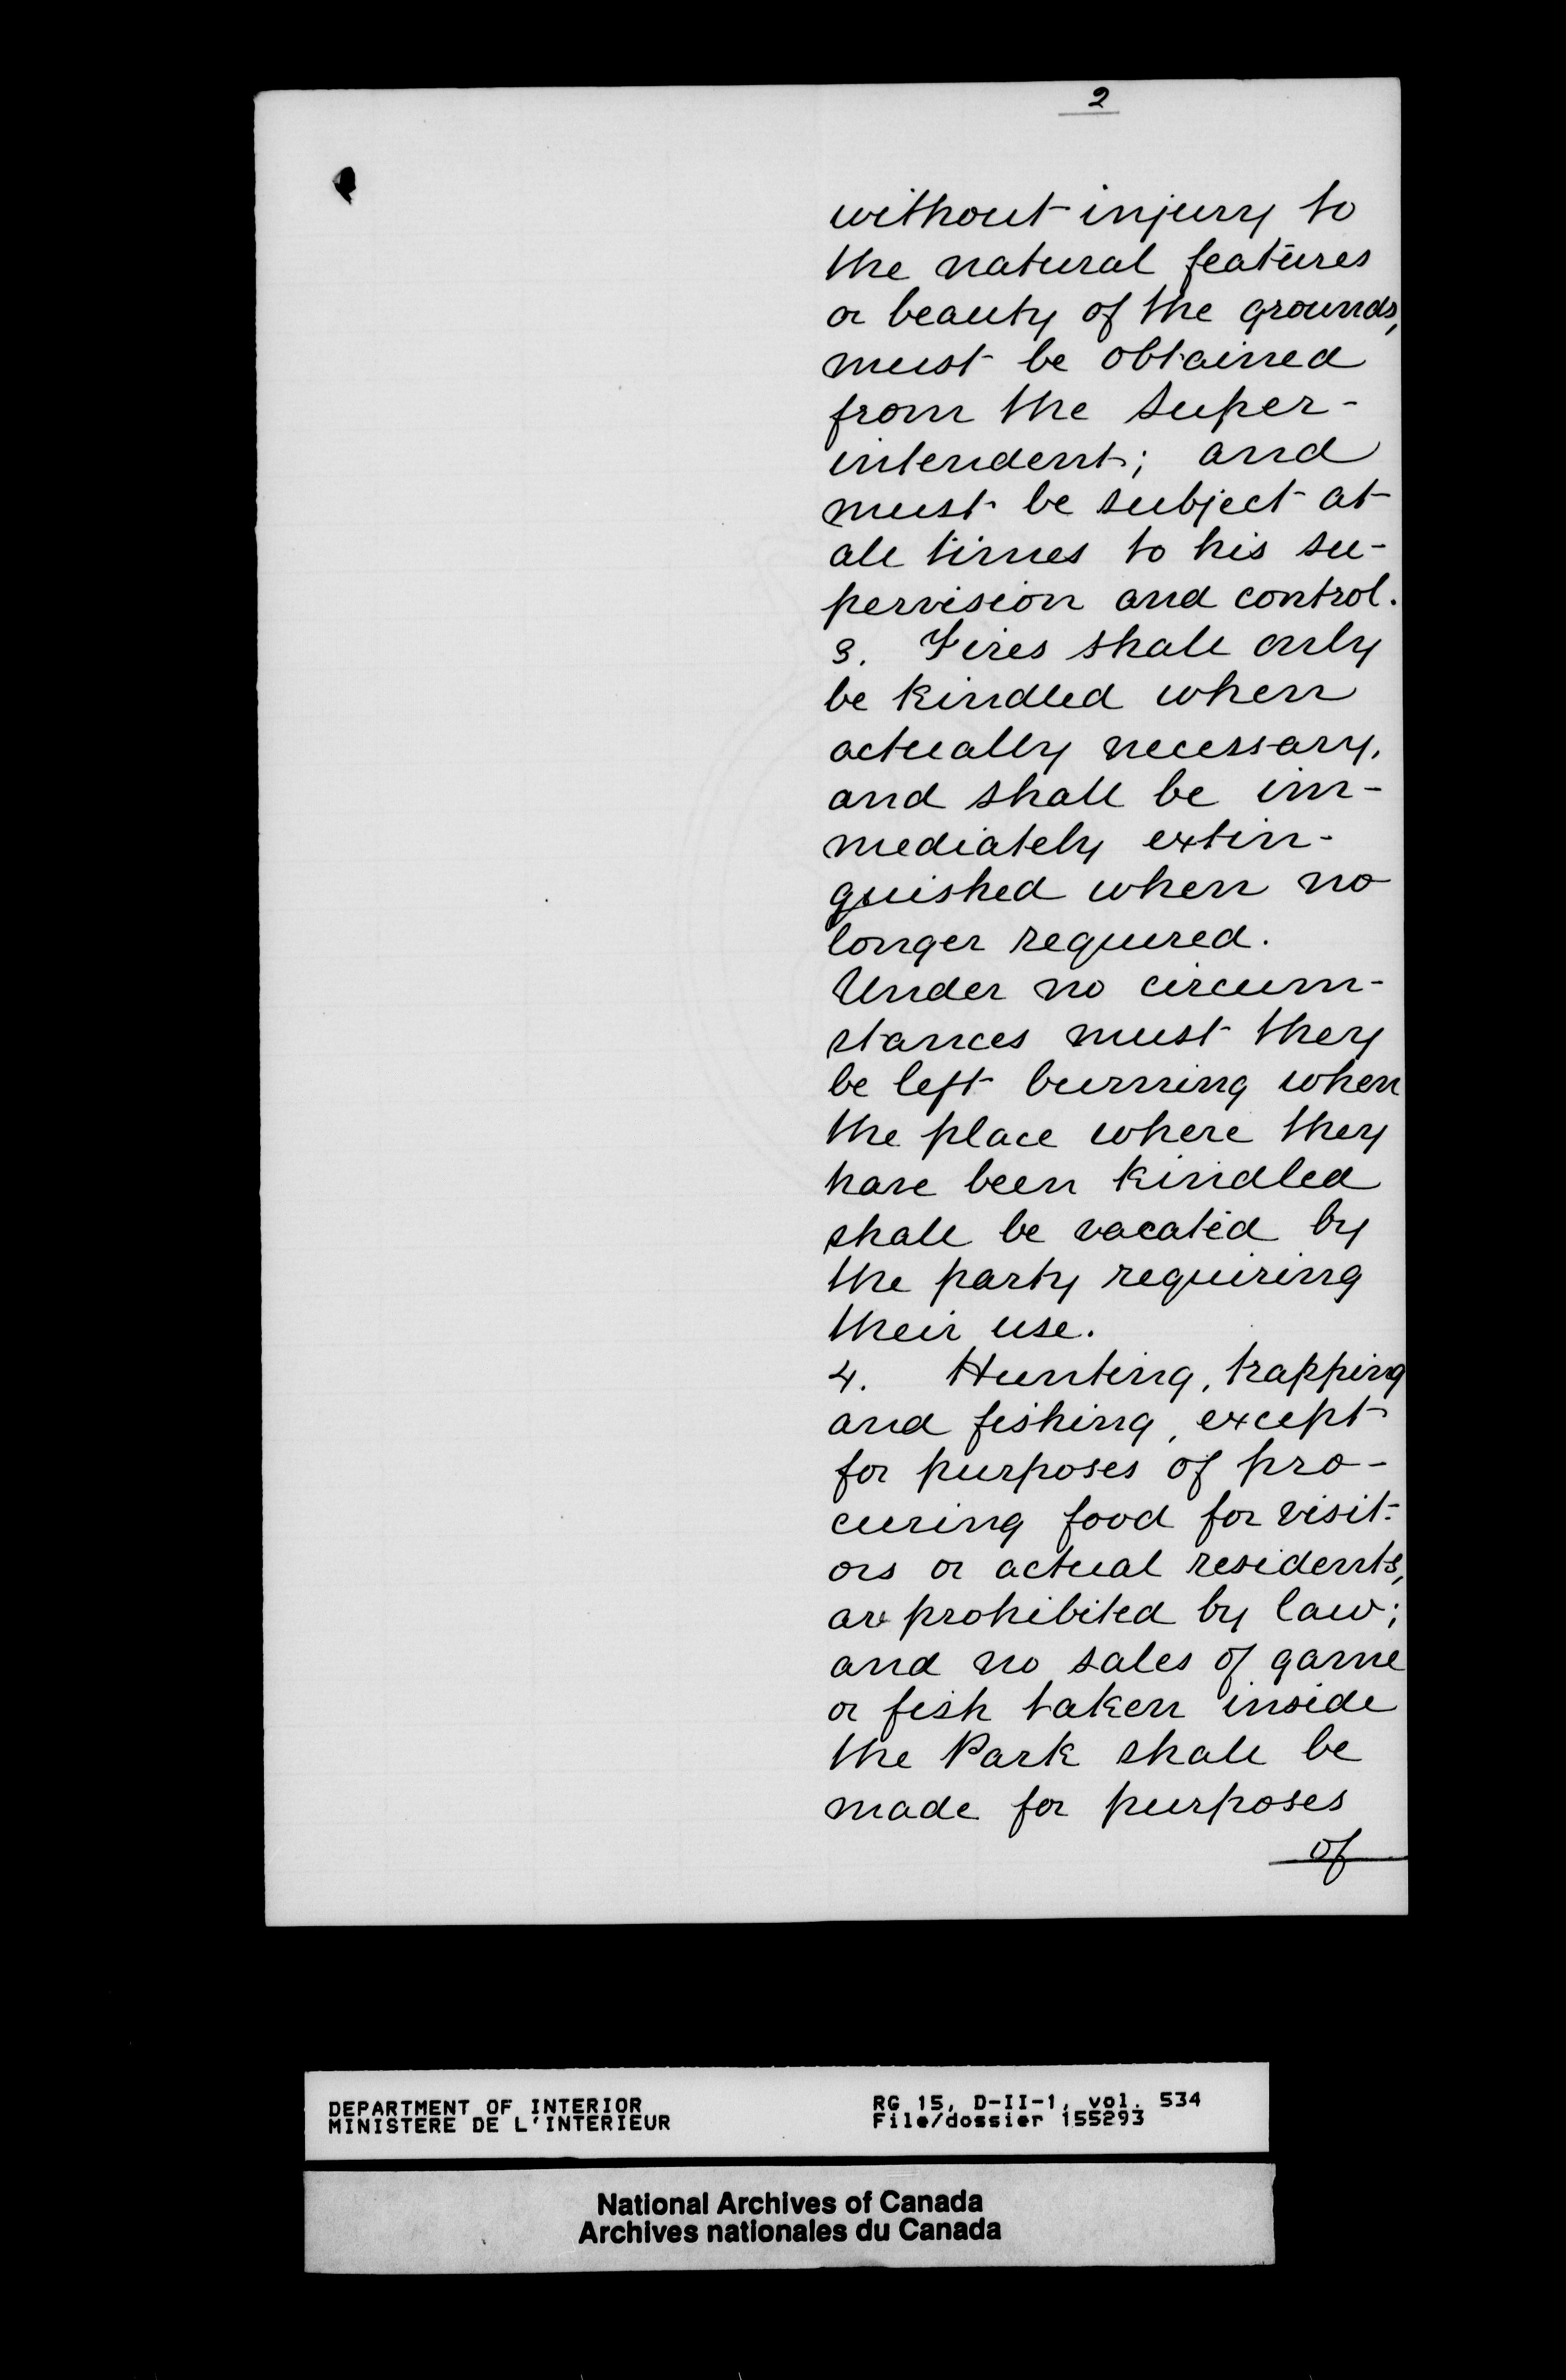 2
without injury to
the natural features
or beauty of the grounds,
must be obtained
from the Super-
intendent; and
must be subject at
all times to his su-
pervision and control.
3. Fires shall only
be kindled when
actually necessary,
and shall be im-
mediately extin-
guished when no
longer required.
Under no circum-
stances must they
be left burning when
the place where they
have been kindled
shall be vacated by
the party requiring
their use.
4. Hunting, trapping
and fishing, except
for purposes of pro-
curing food for visit-
ors or actual residents,
are prohibited by law;
and no sales of game
or fish taken inside
the Park shall be
made for purposes
of
DEPARTMENT OF INTERIOR
MINISTERE DE L'INTERIEUR
RG 15, D-II-1, vol. 534
File/dossier 155293
National Archives of Canada
Archives nationales du Canada